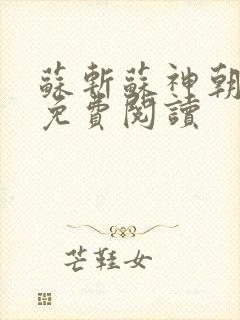 蘇斬蘇神朝
免費閱讀
芒鞋女